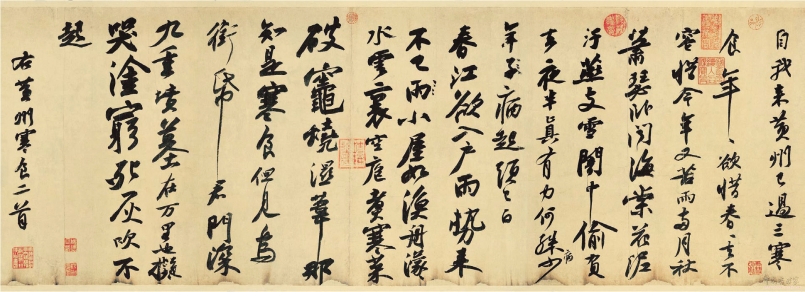 自我来黃州已過三寒
食年〻欲惜春〻去不
容惜今年又苦雨兩月秋
蕭瑟卧聞海棠花泥
汙燕支雪闇中偷負
去夜半真有力何殊少
病
年子病起頭已白
春江欲入戶雨勢来
不已雨小屋如漁舟濛〻
水雲裏空庖煮寒菜
破竈燒濕葦那
知是寒食但見烏
銜帋君門深
九重墳墓在万里也擬
哭塗窮死灰吹不
起
右黃州寒食二首